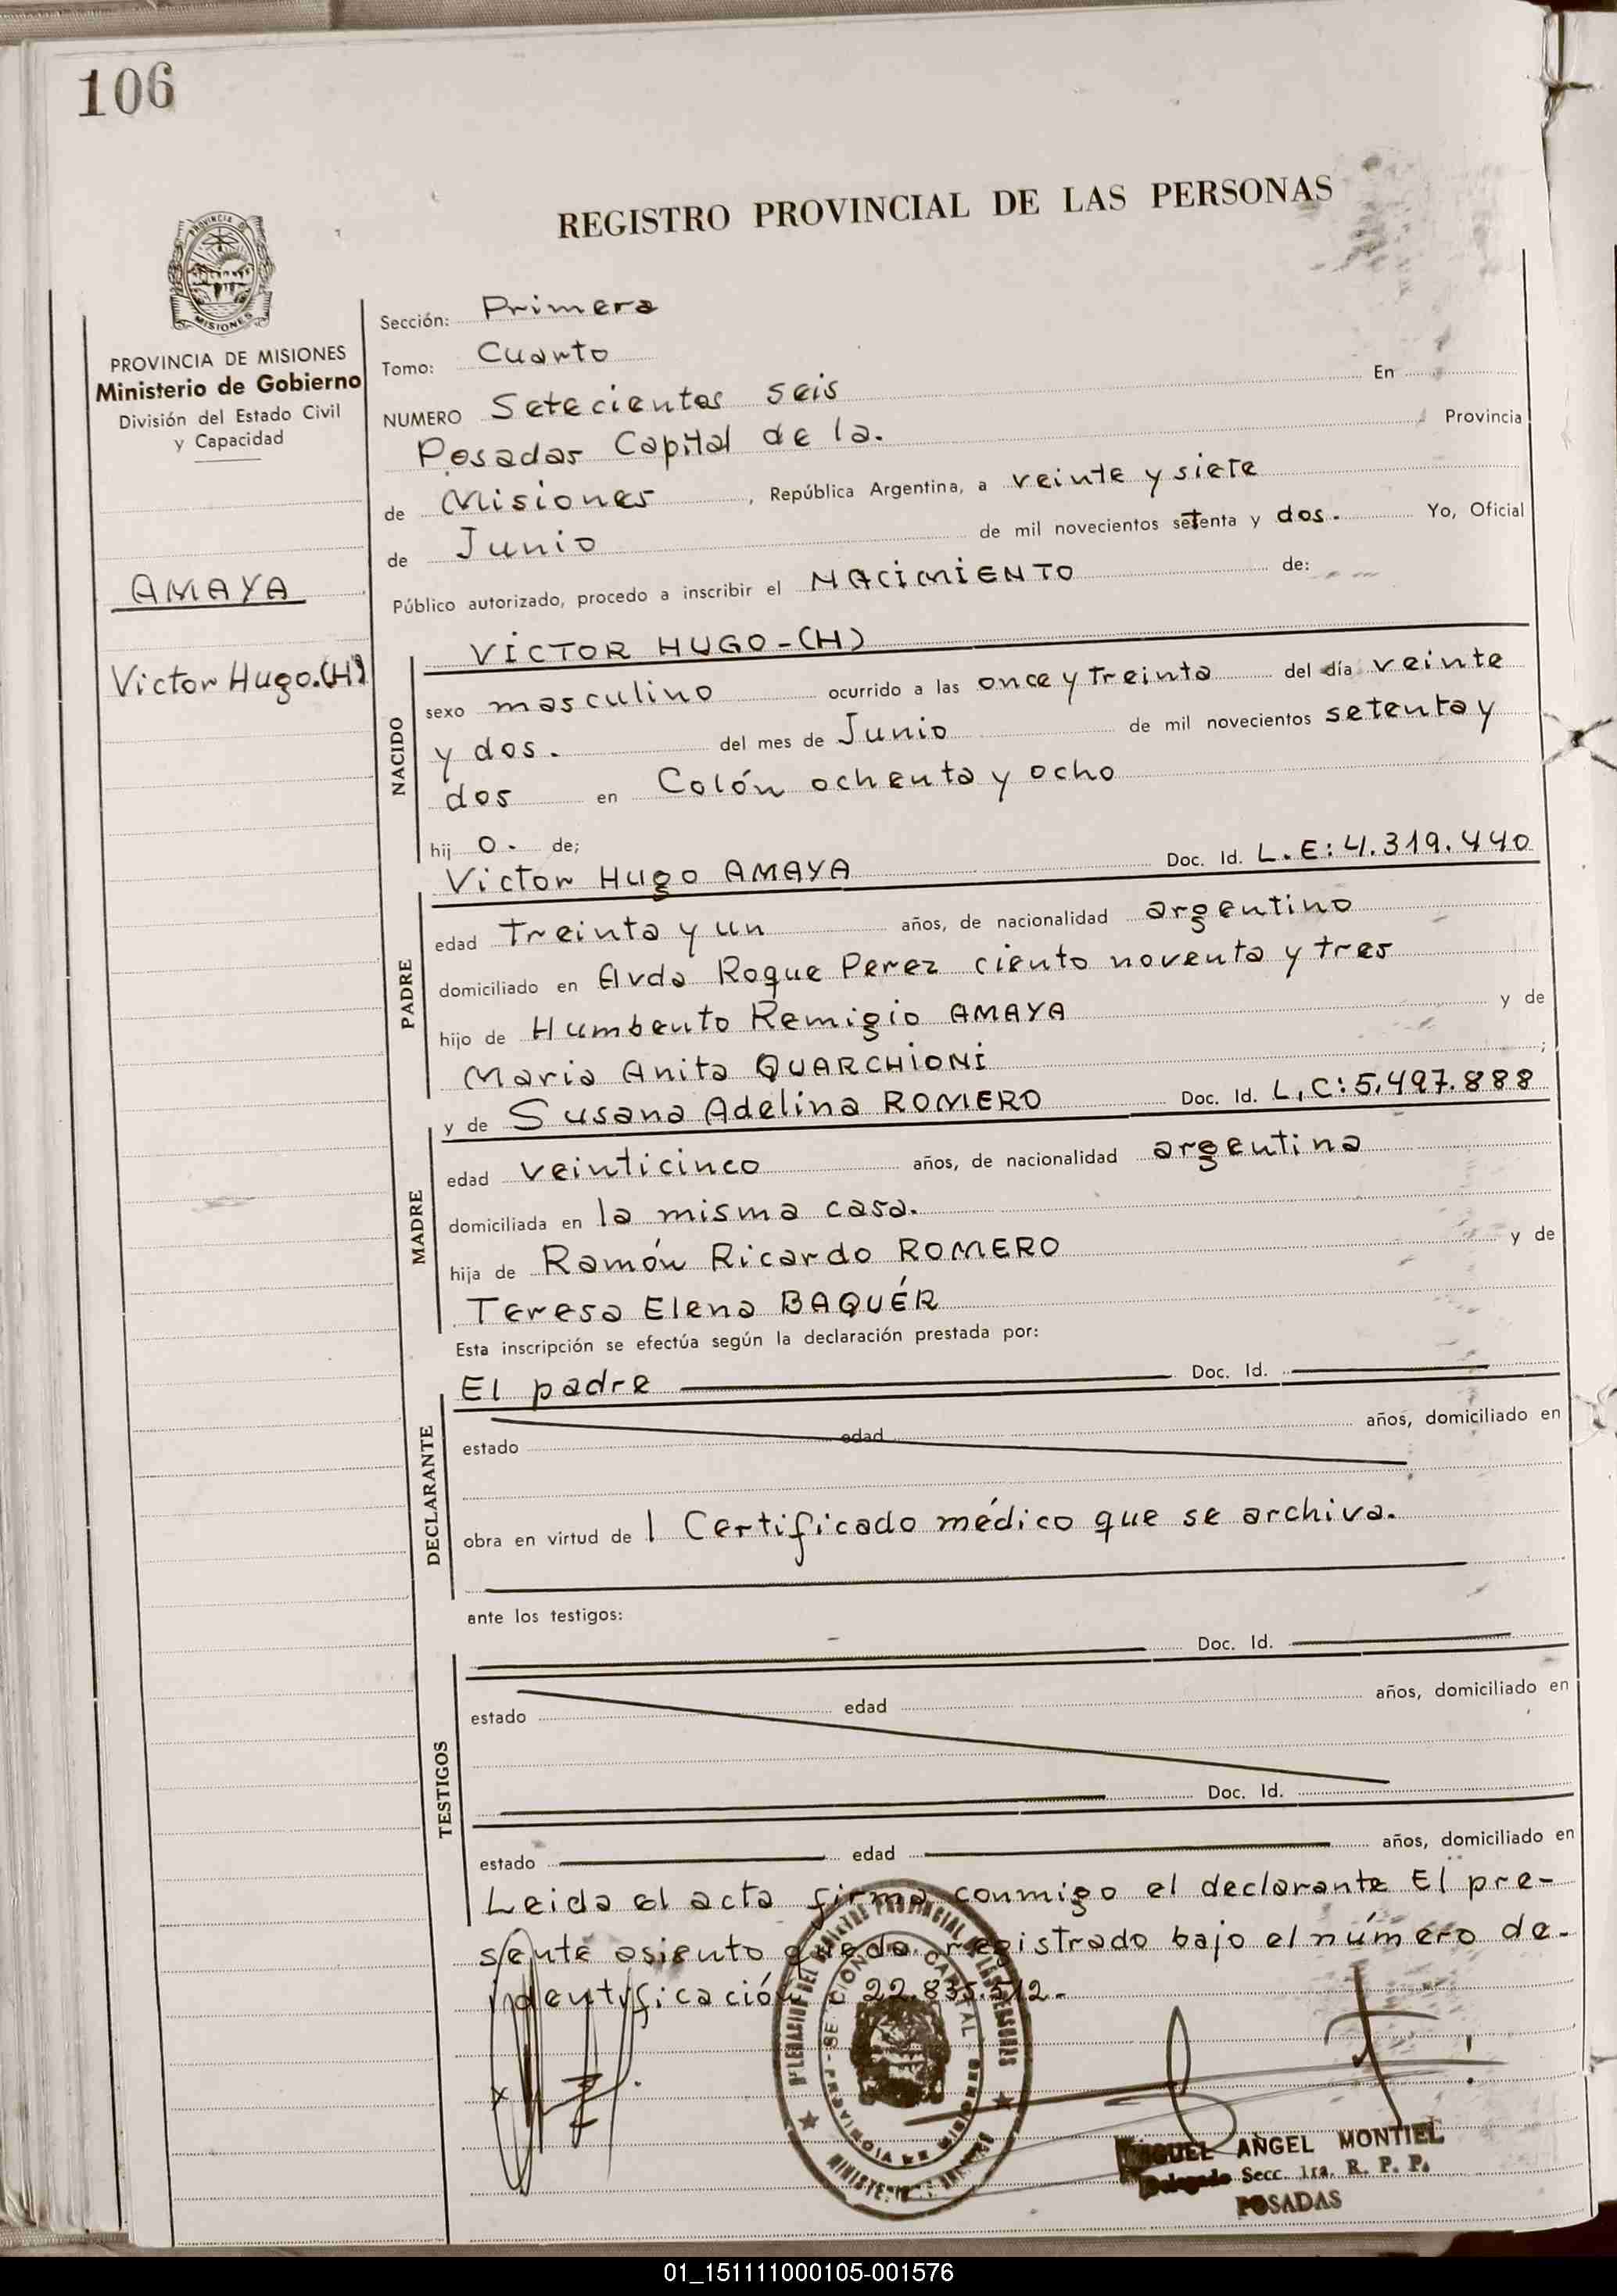 106
REGISTRO PROVINCIAL DE LAS PERSONAS
PROVINCIA DE
MISIONES
PROVINCIA DE MISIONES
Ministerio de Gobierno
División del Estado Civil
y Capacidad
AMAYA
Victor Hugo.(H)
Sección: Primera
Tomo: Cuarto
NUMERO Setecientos seis En
Posadas Capital de la. Provincia
de Misiones, República Argentina, a veinte y siete
de Junio de mil novecientos setenta y dos. Yo, Oficial
Público autorizado, procedo a inscribir el NACIMIENTO de:
NACIDO
VICTOR HUGO-(H)
sexo masculino ocurrido a las once y treinta del día veinte
y dos. del mes de Junio de mil novecientos setenta y
dos en Colón ochenta y ocho
hij o. de;
PADRE
Victor Hugo AMAYA Doc. Id. L.E: 4.319.440
edad treinta y un años, de nacionalidad argentino
domiciliado en Avda Roque Perez ciento noventa y tres
hijo de Humberto Remigio AMAYA y de
Maria Anita QUARCHIONI ;
MADRE
y de Susana Adelina ROMERO Doc. Id. L.C: 5.497.888
edad veinticinco años, de nacionalidad argentina
domiciliada en la misma casa.
hija de Ramón Ricardo ROMERO y de
Teresa Elena BAQUÉR
Esta inscripción se efectúa según la declaración prestada por:
DECLARANTE
El padre Doc. Id.
estado edad años, domiciliado en
obra en virtud de l Certificado médico que se archiva.
ante los testigos:
TESTIGOS
Doc. Id.
estado edad años, domiciliado en
Doc. Id.
estado edad años, domiciliado en
Leida el acta firma conmigo el declarante El pre-
sente asiento queda registrado bajo el número de-
identificación 22.835.512.-
MIGUEL ANGEL MONTIEL
Delegado Secc. 1ra. R. P. P.
POSADAS
01_151111000105-001576